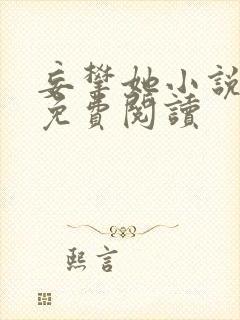 妄攀她小說
免費閱讀
熙言